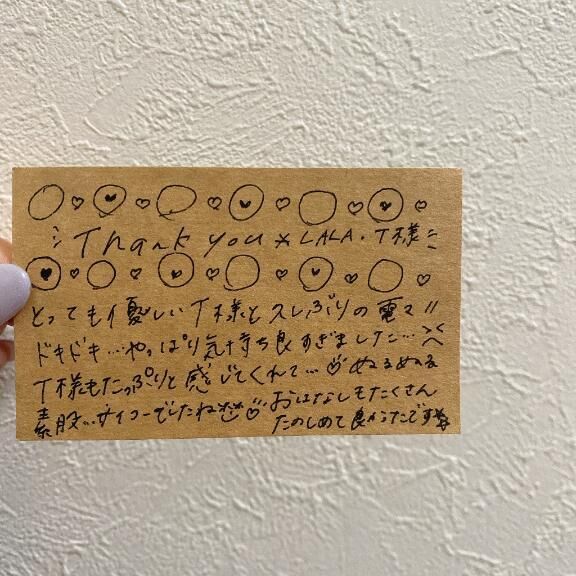 Thank you × LALA・T様
とっても優しいT様と久しぶりの電マ!!
ドキドキ…やっぱり気持ち良すぎました…><
T様もたっぷりと感じてくれて…♡ぬるぬる
素股…サイコーでしたね♡おはなしもたくさん
たのしめて良かったです